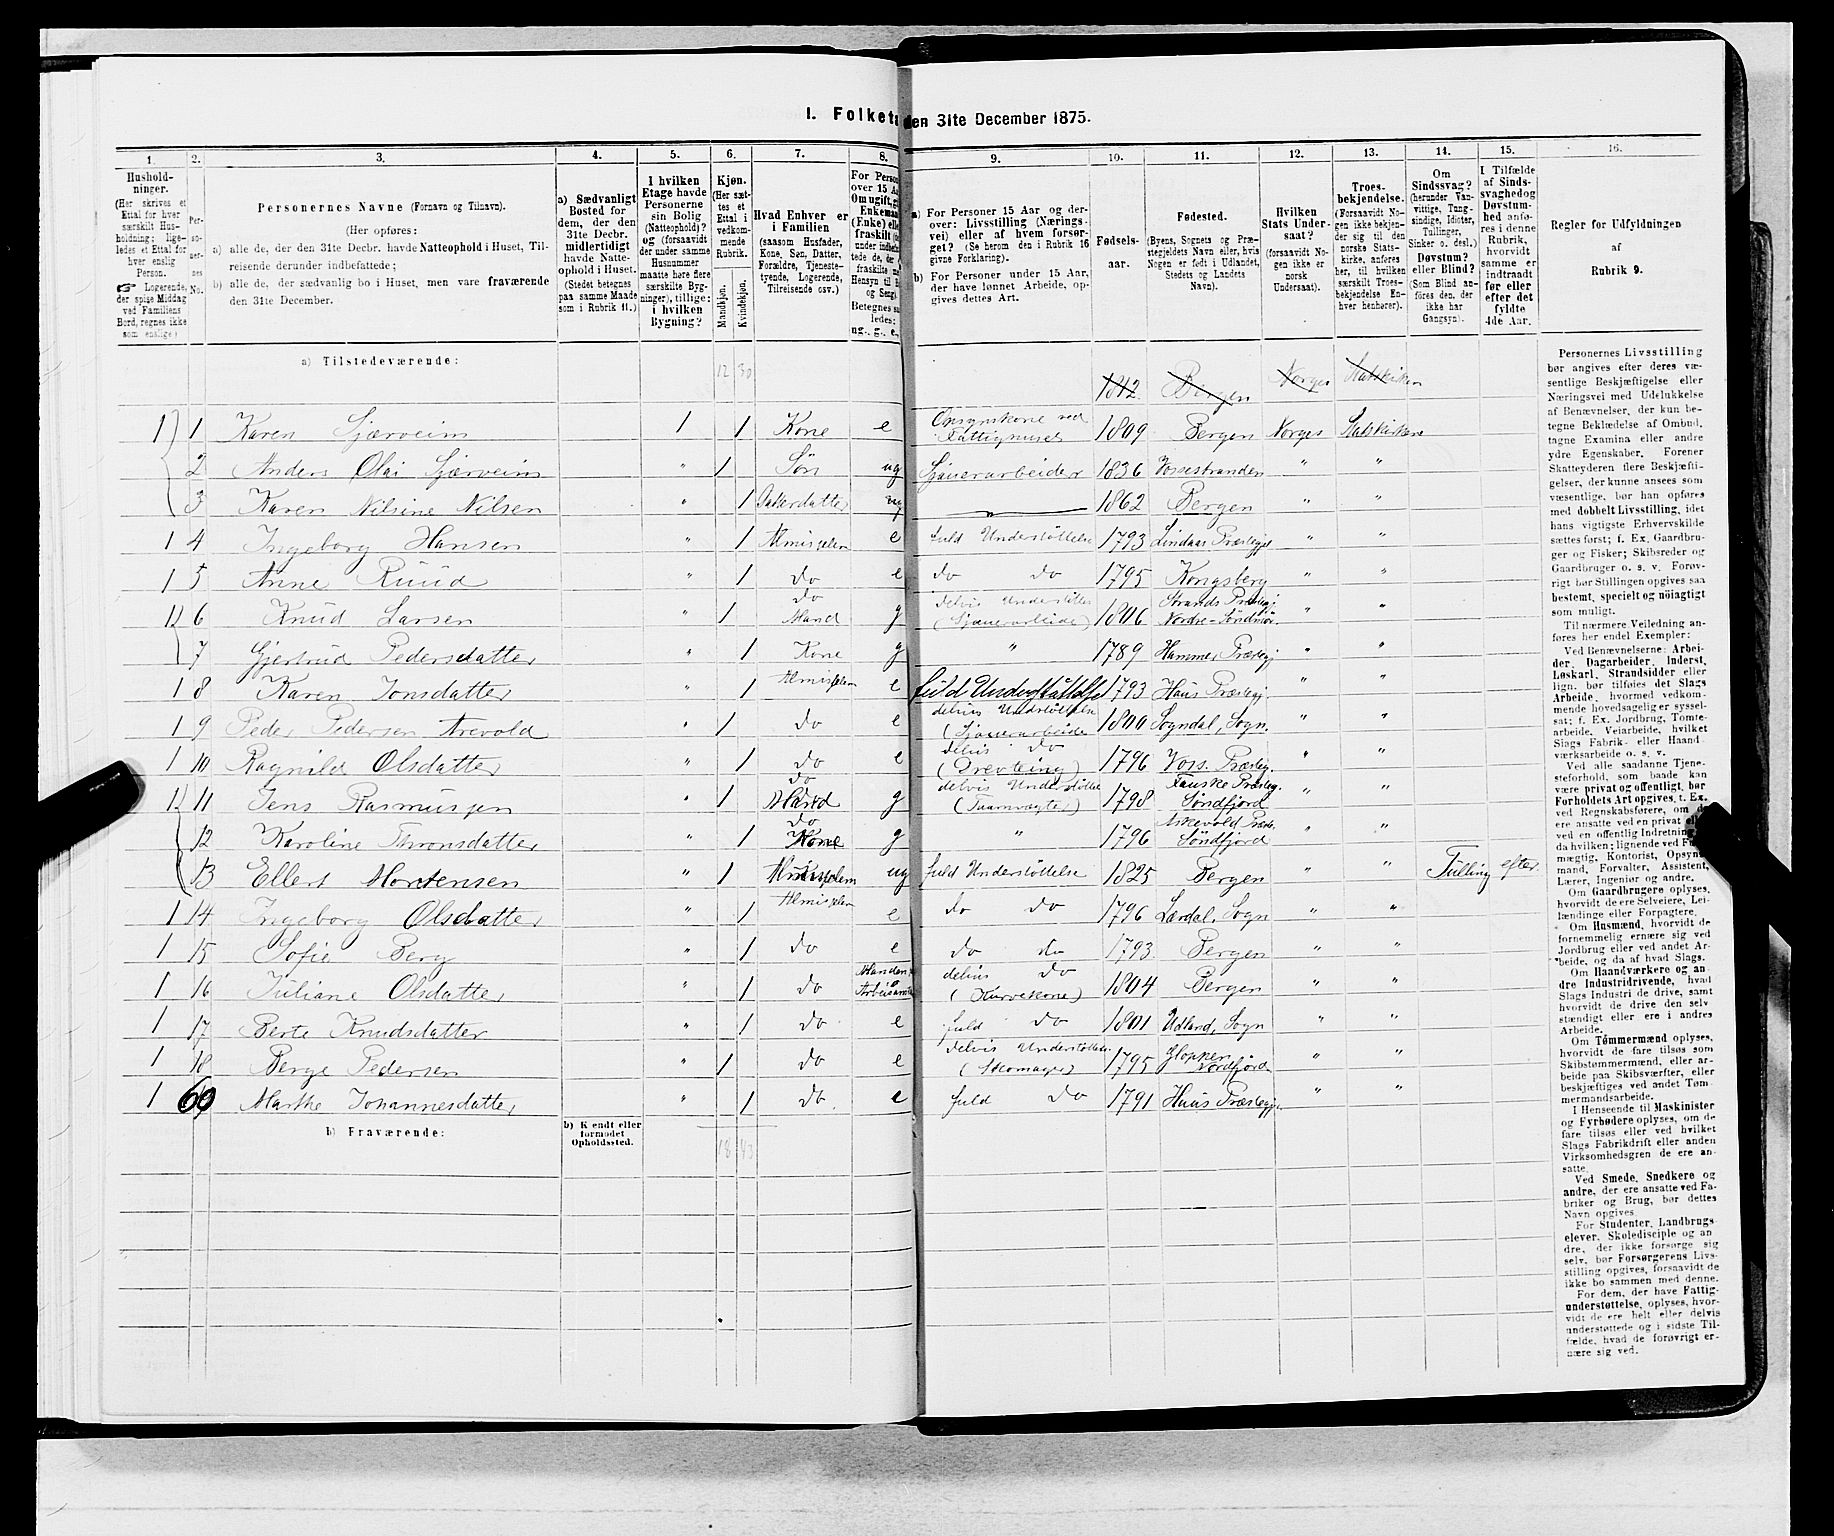 I. Folketæ
den 31te December 1875.
1. 2. 3. 4. 5. 6. 7. 8. 9. 10. 11. 12. 13. 14. 15. 16.
Hushold-
ninger.
(Her skrives et
Ettal for hver
særskilt Hus-
holdning; lige-
ledes et Ettal for
hver enslig
Person.
☞ Logerende,
der spise Middag
ved Familiens
Bord, regnes ikke
som enslige.)
Per-
so-
ner-
nes
No.
Personernes Navne (Fornavn og Tilnavn).
(Her opføres:
a) alle de, der den 31te Decbr. havde Natteophold i Huset, Til-
reisende derunder indbefattede;
b) alle de, der sædvanlig bo i Huset, men vare fraværende
den 31te December.
a) Sædvanligt
Bosted for
dem, der den
31te Decbr.
midlertidigt
havde Natte-
ophold i Huset.
(Stedet betegnes
paa samme Maade
som i Rubrik 11.)
I hvilken
Etage havde
Personerne
sin Bolig
(Natteophold)?
og (forsaavidt
der under samme
Husnummer
maatte høre flere
særskilte Byg-
ninger), tillige:
i hvilken
Bygning?
Kjøn.
(Her sæt-
tes et
Ettal i
vedkom-
mende
Rubrik.
Mandkjøn.
Kvindekjøn.
Hvad Enhver er
i Familien
(saasom Husfader,
Kone, Søn, Datter,
Forældre, Tjeneste-
tyende, Logerende,
Tilreisende osv.)
For Person
over 15 Aa
Om ugift, g
Enkema
(Enke) elle
fraskilt
a) For Personer 15 Aar og der-
over: Livsstilling (Nærings-
vei) eller af hvem forsør-
get? (Se herom den i Rubrik 16
givne Forklaring).
b) For Personer under 15 Aar,
der have lønnet Arbeide, op-
gives dettes Art.
Fødsels-
aar.
Fødested.
(Byens, Sognets og Præ-
stegjeldets Navn eller, hvis
Nogen er født i Udlandet,
Stedets og Landets
Navn).
Hvilken
Stats Under-
saat?
(forsaavidt No-
gen ikke er
norsk
Undersaat).
Troes-
bekjendelse.
(Forsaavidt No-
gen ikke bekjen-
der sig til den
norske Stats-
kirke, anføres
her, til hvilken
særskilt Troes-
bekjendelse En-
hver henhører).
Om
Sindssvag?
(herunder Van-
vittige, Tung-
sindige, Idioter,
Tullinger,
Sinker o. desl.)
Døvstum?
eller Blind?
(Som Blind an-
føres den, der
ikke har
Gangsyn).
I Tilfælde
af Sinds-
svaghed og
Døvstum-
hed anfø-
res i denne
Rubrik,
hvorvidt
samme er
indtraadt
før eller
efter det
fyldte
4de Aar.
Regler for Udfyldningen
af
Rubrik 9.
a) Tilstedeværende: 12 30
1842 Bergen Norges Statskirken
1 1 Karen Sjærveim 1 1 Kone e Opsynskone ved Fattighuset 1809 Bergen Norges Statskirken
2 Anders Olai Sjærveim " 1 Søn ug Sjouerarbeider 1836 Vossestranden " "
3 Karen Nilsine Nilsen " 1 Datterdatter ug 1862 Bergen " "
1 4 Ingeborg Hansen " 1 Almisselem e fuld Understøttelse 1793 Lindaas Præstegj " "
1 5 Anne Ruud " 1 do e do do 1795 Kongsberg " "
1 6 Knud Larsen " 1 do Mand g delvis Understøttelse (Sjouerarbeide) 1806 Strands Præstegj. Nordre-Søndmør. " "
7 Gjertrud Pedersdatter " 1 Kone g " 1789 Hammer Præstegj " "
1 8 Karen Jonsdatter " 1 Almisselem e fuld Understøttelse 1793 Haus Præstegj. " "
1 9 Peder Pedersen Arevold " 1 do e delvis Understøttelse (Sjouerarbeide 1800 Sogndal, Sogn. " "
1 10 Ragnild Olsdatter " 1 do e delvis do (Drevteing) 1796 Vos. Præsteg. " "
1 11 Jens Rasmussen " 1 do Mand g delvis Understøttelse 1798 Præsteg. Søndfjord " "
12 Karoline Thronsdatter " 1 do Kone g " 1796 Askevold Præste. Søndfjord " "
13 Ellert Mortensen " 1 Almisselem ug fuld Understøttelse 1825 Bergen " " Tulling efter
1 14 Ingeborg Olsdatter " 1 Almisselem e do do 1796 Lærdal, Sogn " "
1 15 Sofie Berg " 1 do e do do 1793 Bergen " "
1 16 Juliane Olsdatter " 1 do Manden delvis do (Kurvekone) 1804 Bergen " "
1 17 Berte Knudsdatter " 1 do e fuld do 1801 Urland, Sogn " "
1 18 Berge Pedersen " 1 do e delvis Understøttelse (Skomager) 1795 Gloppen Nordfjord " "
1 60 Marthe Johannesdatter " 1 do. e fuld do 1791 Haus Præstegj. " "
b) Fraværende:
b) Kjendt eller
formodet
Opholdssted.
18 43
Personernes Livsstilling
bør angives efter deres væ-
sentlige Beskjæftigelse eller
Næringsvei med Udelukkelse
af Benævnelser, der kun be-
tegne Beklædelse af Ombud,
tagne Examina eller andre
ydre Egenskaber. Forener
Skatteyderen flere Beskjæfti-
gelser, der kunne ansees som
væsentlige, bør han opføres
med dobbelt Livsstilling, idet
hans vigtigste Erhvervskilde
sættes først; f. Ex. Gaardbru-
ger og Fisker; Skibsreder og
Gaardbruger o. s. v. Forøv-
rigt bør Stillingen opgives saa
bestemt, specielt og nøiagtigt
som muligt.
Til nærmere Veiledning an-
føres her endel Exempler:
Ved Benævnelserne: Arbei-
der, Dagarbeider, Inderst,
Løskarl, Strandsidder eller
lign. bør tilføies det Slags
Arbeide, hvormed vedkom-
mende hovedsagelig er syssel-
sat; f. Ex. Jordbrug, Tomte-
arbeide, Veiarbeide, hvilket
Slags Fabrik- eller Haand-
værksarbeide o. s. v.
Ved alle saadanne Tjene-
steforhold, som baade kan
være privat og offentlig, bør
Forholdets Art opgives, t. Ex.
ved Regnskabsførere, om de
ere ansatte ved en privat eller
ved en offentlig Indretning
da hvilken; lignende ved Fuld-
mægtig, Kontorist, Opsyns-
mand, Forvalter, Assistent,
Lærer, Ingeniør og andre.
Om Gaardbrugere oplyses,
hvorvidt de ere Selveiere, Lei-
lændinge eller Forpagtere.
Om Husmænd, hvorvidt de
fornemmelig ernære sig ved
Jordbrug eller ved andet Ar-
beide, og da af hvad Slags.
Om Haandværkere og an-
dre Industridrivende, hvad
Slags Industri de drive, samt
hvorvidt de drive den selv-
stændigt eller ere i andres
Arbeide.
Om Tømmermænd oplyses,
hvorvidt de fare tilsøs som
Skibstømmermænd, eller ar-
beide paa Skibsværfter, eller
beskjæftiges ved andet Tøm-
mermandsarbeide.
I Henseende til Maskinister
og Fyrbødere oplyses, om de
fare tilsøs eller ved hvilket
Slags Fabrikdrift eller anden
Virksomhedsgren de ere an-
satte.
Ved Smede, Snedkere og
andre, der ere ansatte ved Fa-
briker og Brug, bør dettes
Navn opgives.
For Studenter, Landbrugs-
elever, Skoledisciple og an-
dre, der ikke forsørge sig
selv, bør Forsørgerens Livs-
stilling opgives, forsaavidt de
ikke bo sammen med denne.
For dem, der have Fattig-
understøttelse, oplyses, hvor-
vidt de ere helt eller delvis
understøttede og i sidste Til-
fælde, hvad de forøvrigt er-
nære sig ved.